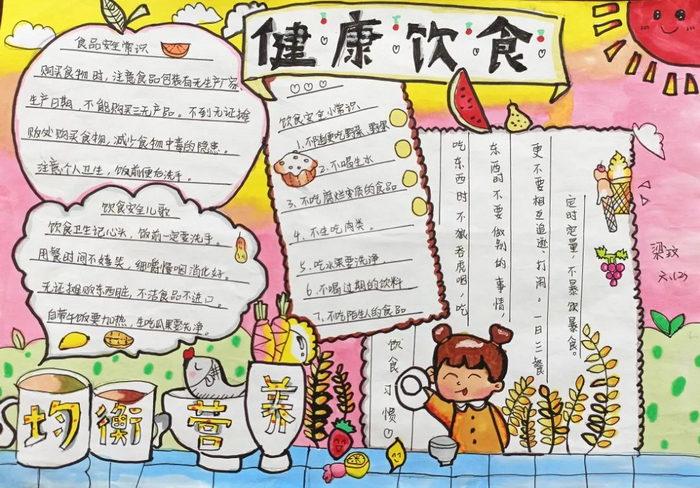 健康饮食
食品安全常识
购买食物时,注意食品包装有无生产厂家、
生产日期,不能购买三无产品。不到无证摊
贩处购买食物,减少食物中毒的隐患。
注意个人卫生,饭前便后洗手。
饮食安全儿歌
饮食卫生记心头,饭前一定要洗手。
用餐时间不嬉笑,细嚼慢咽消化好。
无证摊贩东西脏,不洁食品不进口。
自带午饭要加热,生吃瓜果要洗净。
饮食安全小常识
1.不随便吃野菜、野果
2.不喝生水
3.不吃腐烂变质的食品
4.不生吃肉类。
5.吃水果要洗净
6.不喝过期的饮料
7.不吃陌生人的食品
定时定量,不暴饮暴食。
更不要相互追逐、打闹。一日三餐
东西时不要做别的事情,
吃东西时不狼吞虎咽,吃
饮食习惯
梁玟
六(2)
均衡营养